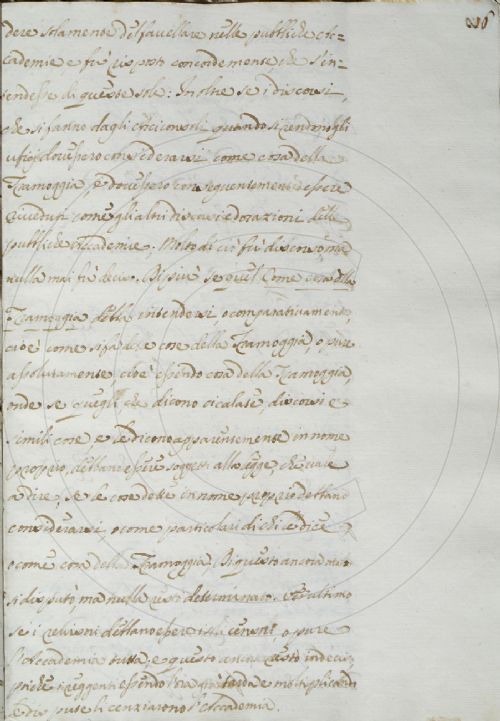 dere solamente del favellare nelle pubbliche Ac-
cademie e fu risposto concordemente che s'in-
tendesse di queste sole: Inoltre se i discorsi,
che si fanno dagli Arciconsoli quando si rendono gli
ufizj dovessero considerarsi come cosa della
Tramoggia, e dovessero conseguentemente essere
riveduti come gli altri discorsi ed orazioni delle
pubbliche Accademie; Molto di ciò fu discorso, ma
nulla mai fu deciso. Di più se quel Come cosa della
Tramoggia debba intendersi, o comparativamente,
cioè come si fa alle cose della Tramoggia, o pure
assolutamente, cioè essendo cosa della Tramoggia,
onde se quegli, che dicono cicalate, discorsi e
simili cose, e le dicono apparentemente in nome
proprio, debbano essere soggetti alla legge, che vale
a dire, se le cose dette in nome proprio debbano
considerarsi, o come particolari di chi le dice
o come cosa della Tramoggia. Di questo ancora
si disputò, ma nulla restò determinato. Per ultimo
se i revisori debbano essere i soli censori, o pure
l'Accademia tutta, e questo ancora restò indeciso
perché i reggenti essendo l'ora già tarda
pure licenziarono l'Accademia.